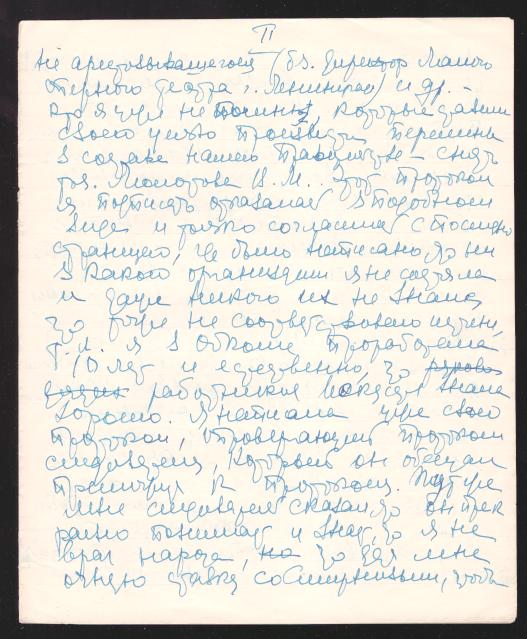 II
не арестовывающегося (бв. директор Малого
оперного театра г. Ленинграда) и др. –
кто я уже не помню, которые ставили
своею целью произвести перемены
в составе нашего правительства – снять
тов. Молотова В. М. Этот протокол
я подписать отказалась в подобном
виде и только согласилась с последней
страницей, где было написано, что ни
в какой организации я не состояла
и даже никого их не знаю,
что тоже не соответствовало истине,
т. к. я в Обкоме проработала
10 лет и естественно, что
работников Обкома знала
хорошо. Я написала уже свой
протокол, опровергающий протокол
следователя, который он обещал
приобщить к протоколу. Тут же
мне следователь сказал, что он прек
расно понимает и знает, что я не
враг народа, но что даст мне
очную ставку со Смирновым, чтобы